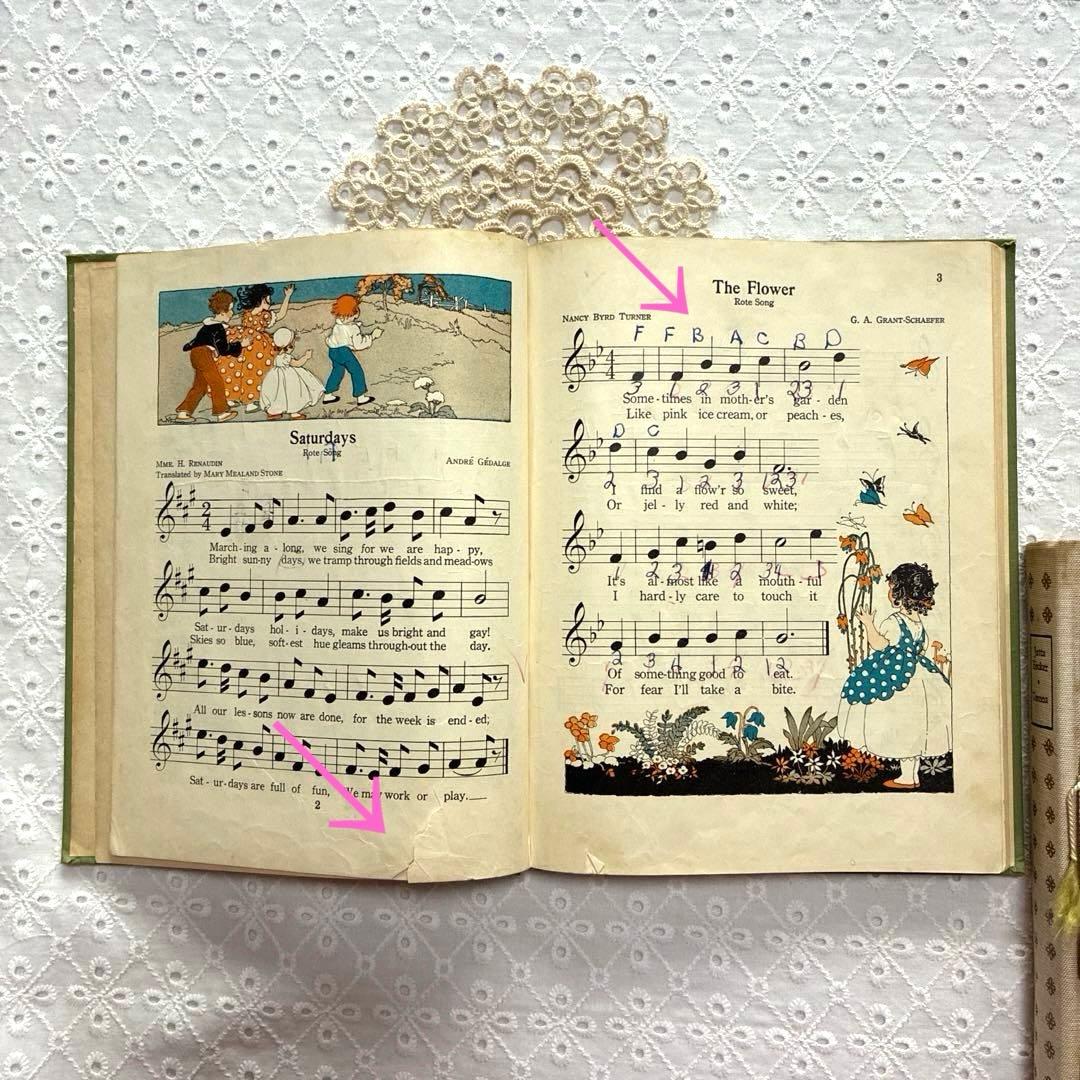 Saturdays
Rote Song
MME. H. RENAUDIN
ANDRÉ GÉDALGE
Translated by MARY MEALAND STONE
2
4
March-ing a - long, we sing for we are hap - py,
Bright sun-ny days, we tramp through fields and mead-ows
Sat - ur - days hol - i - days, make us bright and gay!
Skies so blue, soft-est hue gleams through-out the day.
All our les - sons now are done, for the week is end - ed;
Sat - ur-days are full of fun, We may work or play.
2
3
The Flower
Rote Song
NANCY BYRD TURNER
G. A. GRANT-SCHAEFER
F F B A C B D
4
4
3 1 2 3 1 23 1
Some - times in moth-er's gar - den
Like pink ice cream, or peach - es,
D C
2 3 1 2 3 123
I find a flow'r so sweet,
Or jel - ly red and white;
It's al - most like a mouth - ful
I hard - ly care to touch it
Of some-thing good to eat.
For fear I'll take a bite.